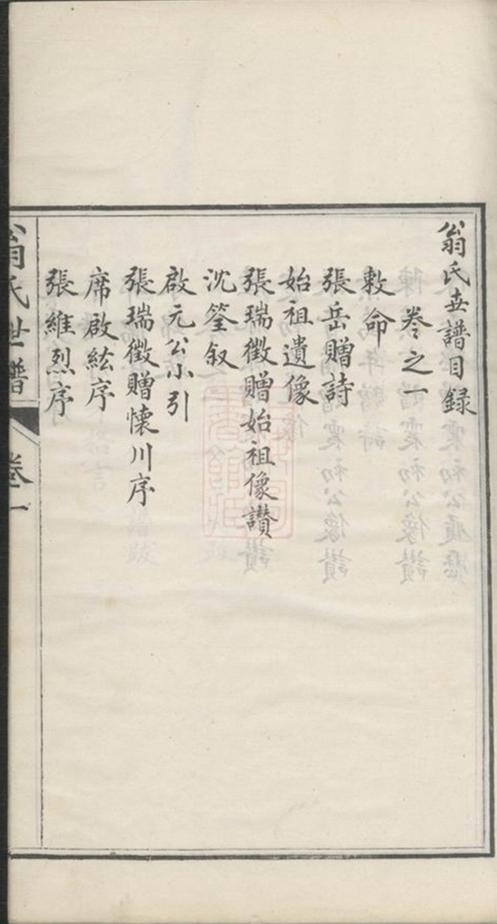 翁氏世譜目録
卷之一
敕命
張岳贈詩
始祖遺像
張瑞徵贈始祖像讃
沈筌叙
啟元公小引
張瑞徵贈懷川序
席啟紘序
張維烈序
翁氏世譜
卷一